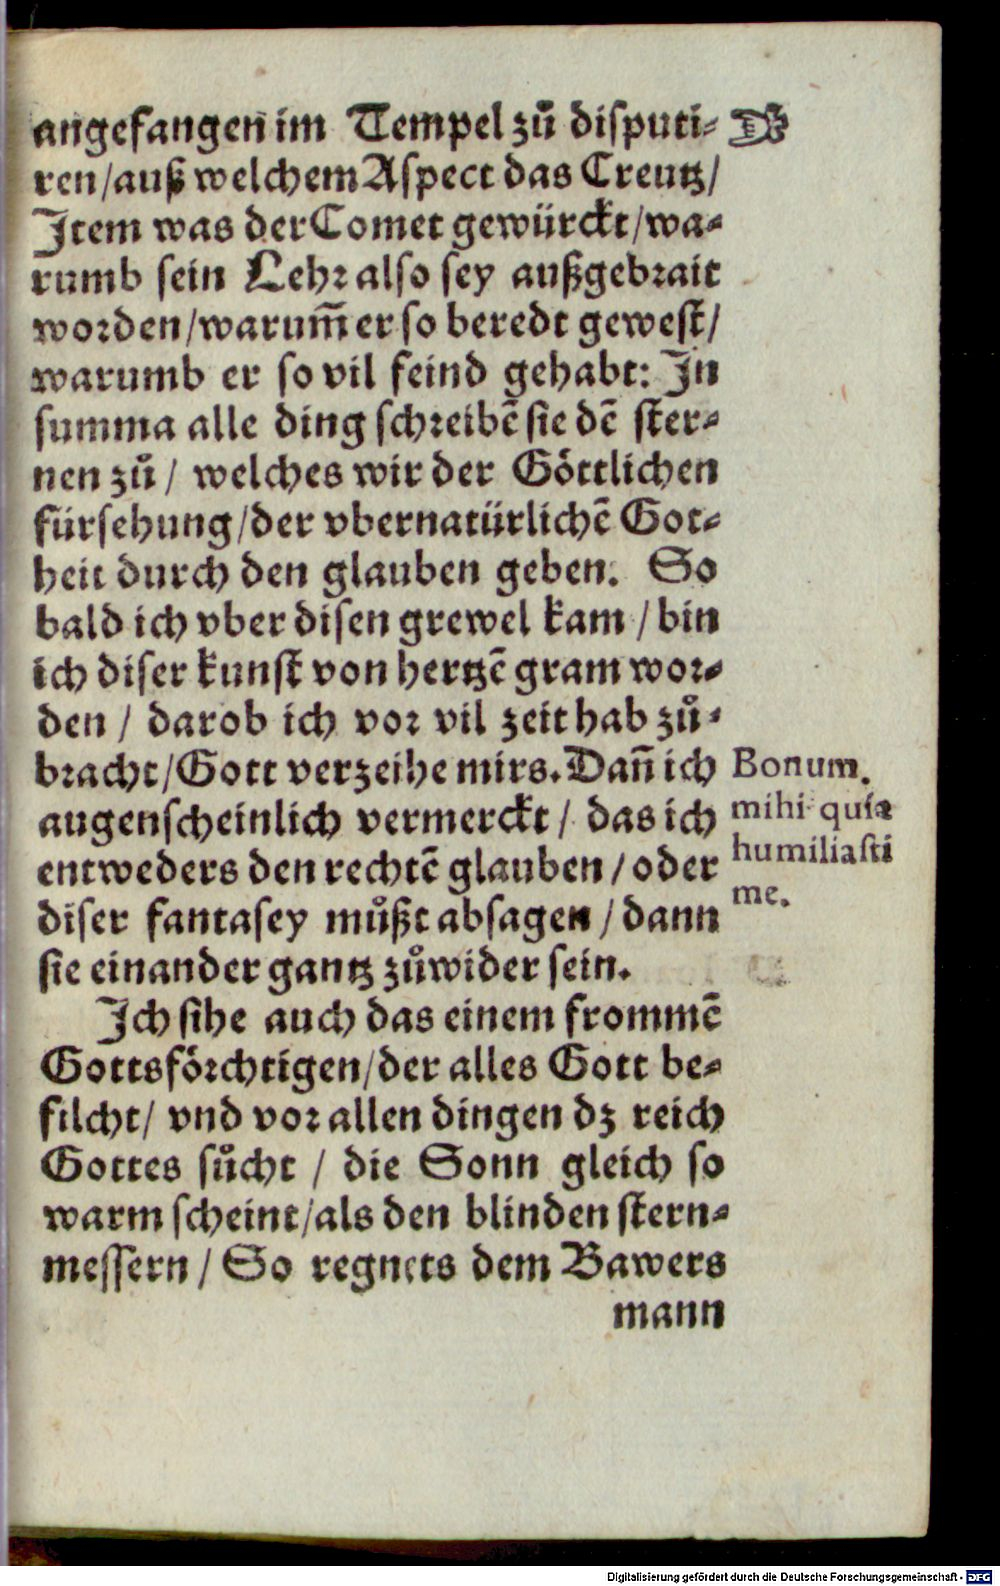 angefangen im Tempel zů disputi-
ren/auß welchem Aspect das Creutz/
Item was der Comet gewürckt/wa-
rumb sein Lehr also sey außgebrait
worden/warum̃ er so beredt gewest/
warumb er so vil feind gehabt: In
summa alle ding schreibē sie dē ster-
nen zů/ welches wir der Göttlichen
fürsehung/der vbernatürlichē Got-
heit durch den glauben geben. So
bald ich vber disen grewel kam/bin
ich diser kunst von hertzē gram wor-
den/ darob ich vor vil zeit hab zů-
bracht/Gott verzeihe mirs. Dañ ich
augenscheinlich vermerckt/ das ich
entweders den rechtē glauben/oder
diser fantasey můßt absagen/dann
sie einander gantz zůwider sein.
Ich sihe auch das einem frommē
Gottsförchtigen/der alles Gott be-
filcht/ vnd vor allen dingen dz reich
Gottes sůcht/ die Sonn gleich so
warm scheint/als den blinden stern-
messern/ So regnets dem Bawers
mann
Bonum.
mihi quia
humiliasti
me.
Digitalisierung gefördert durch die Deutsche Forschungsgemeinschaft - DFG